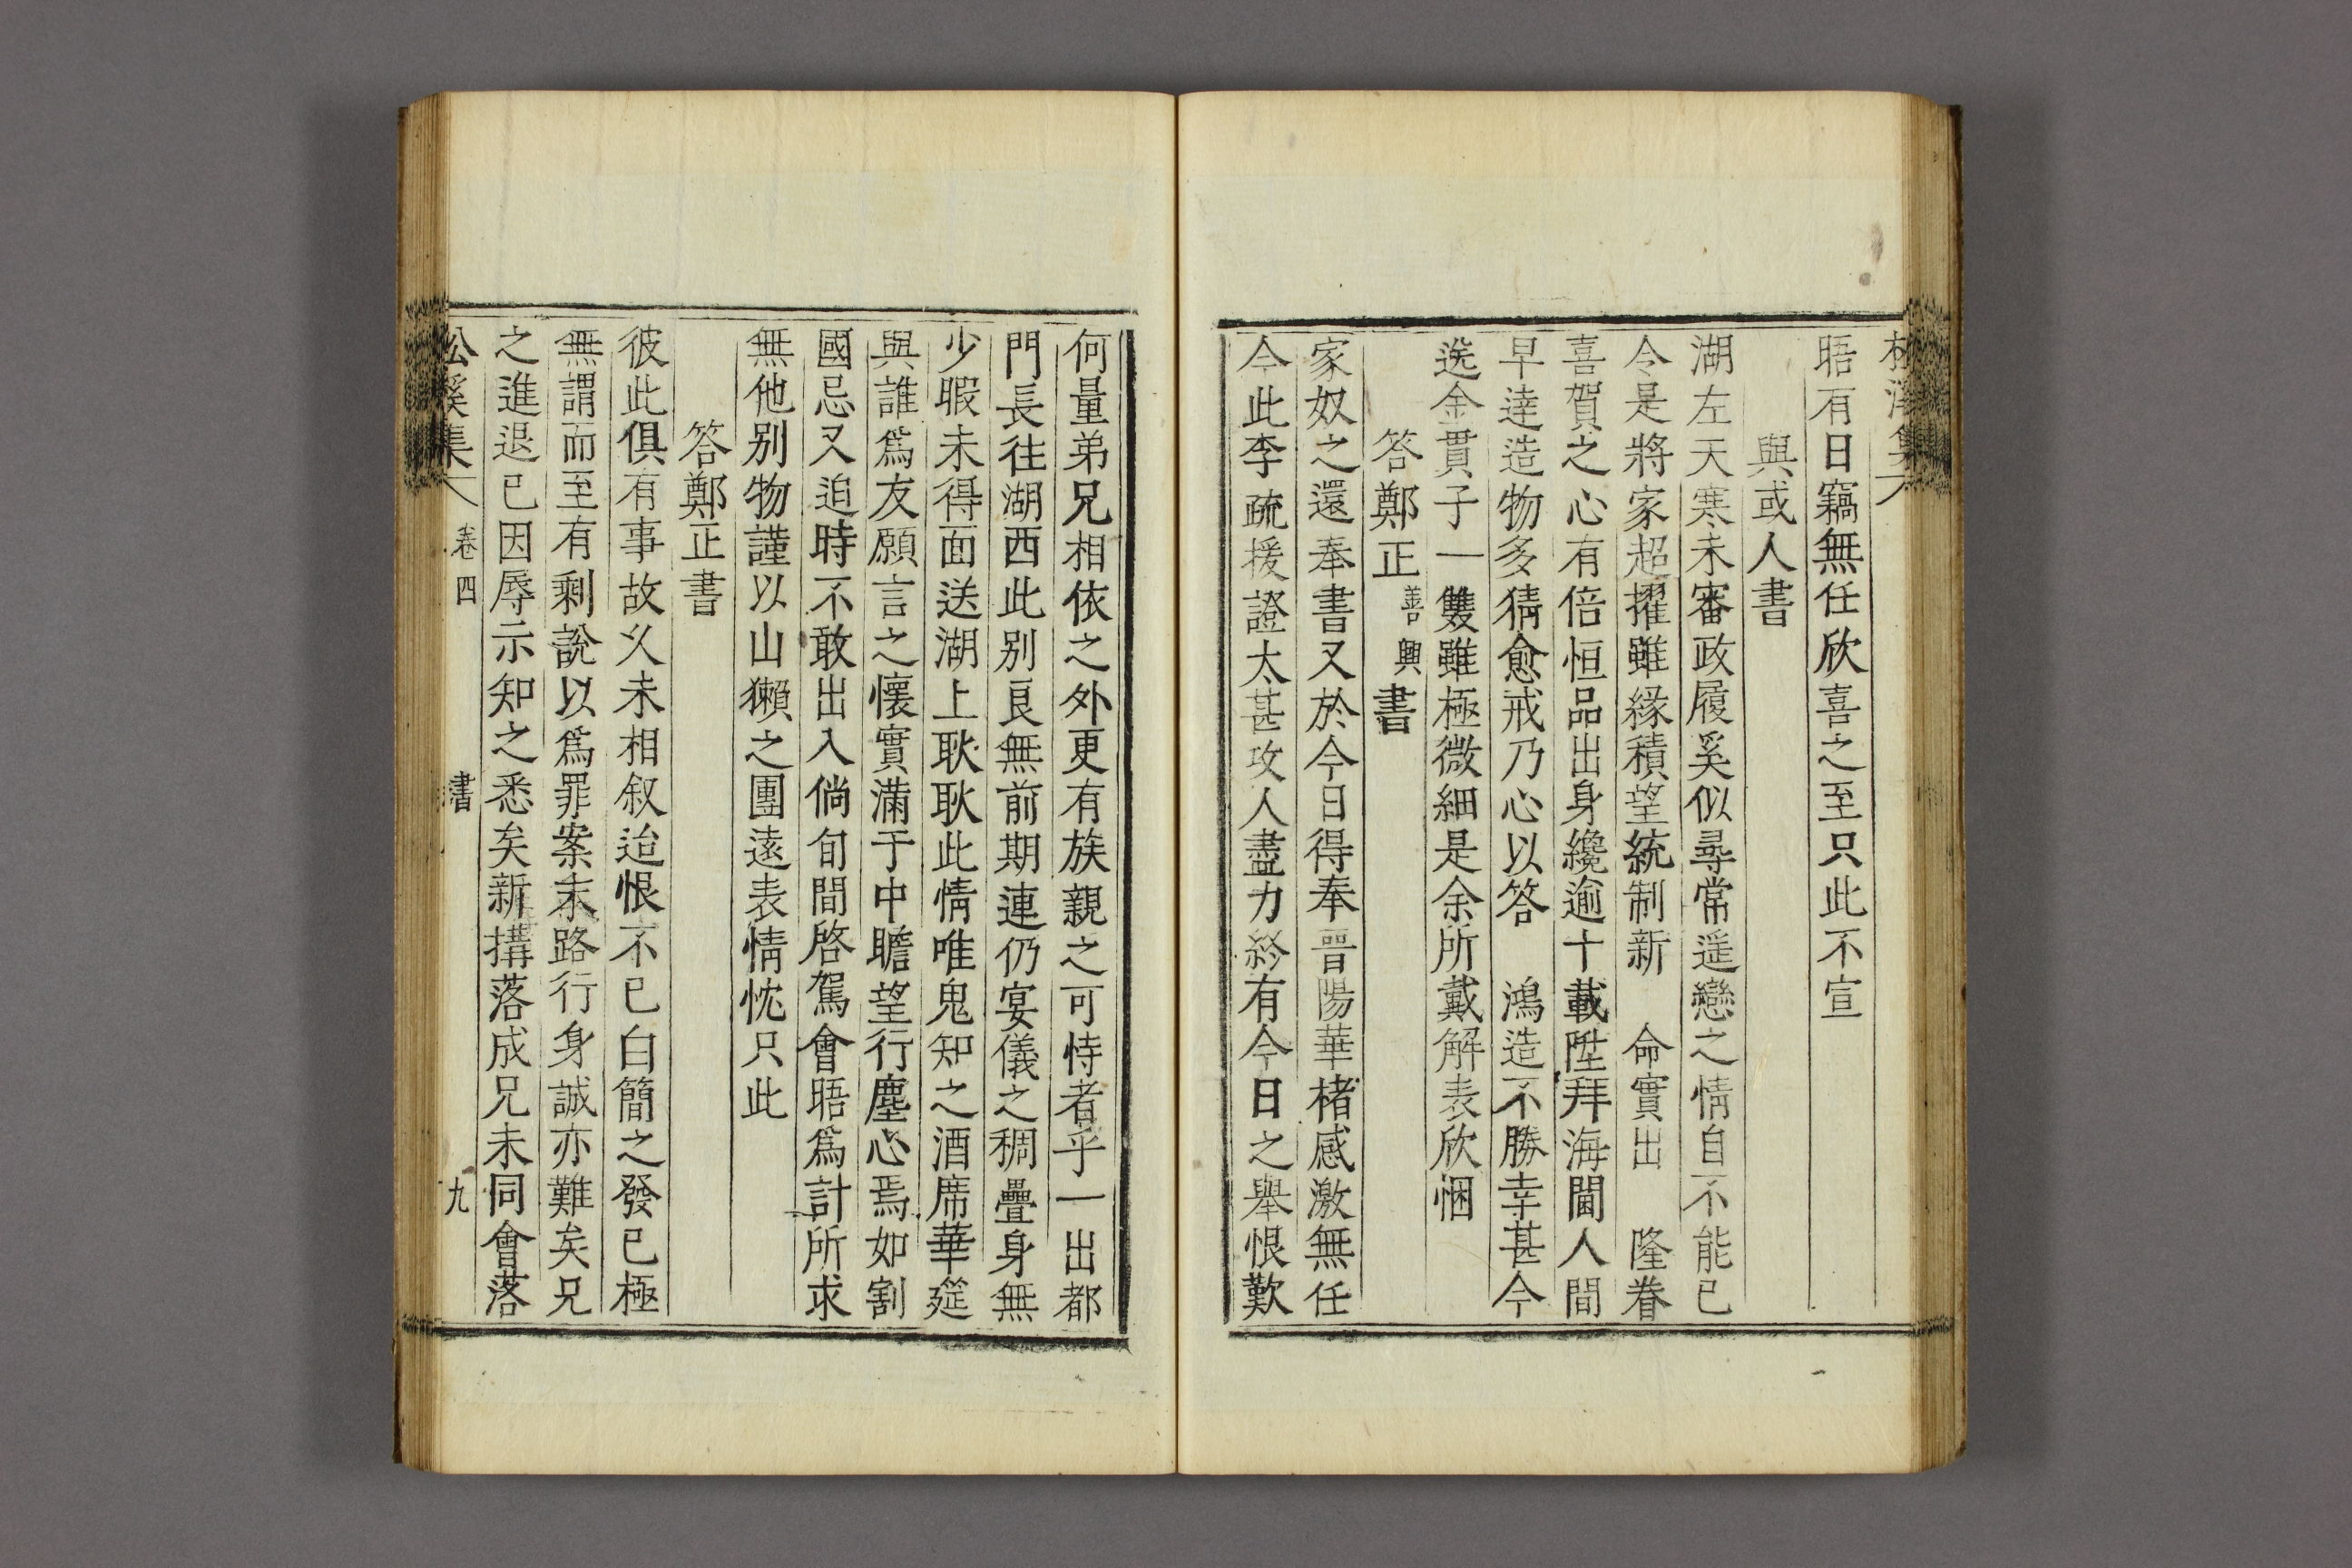 晤有日竊無任欣喜之至只此不宣
與或人書
湖左天寒未審政履奚似尋常遥戀之情自不能已
令是將家超擢雖緣積望統制新 命實出 隆眷
喜賀之心有倍恒品出身纔逾十載陞拜海閫人間
早達造物多猜愈戒乃心以答 鴻造不勝幸甚今
送金貫子一雙雖極微細是余所戴解表欣悃
答鄭正善興書
家奴之還奉書又於今日得奉晋陽華楮感激無任
今此李疏援證太甚攻人盡力終有今日之舉恨歎
何量弟兄相依之外更有族親之可恃者乎一出都
門長往湖西此别良無前期連仍宴儀之稠疊身無
少暇未得面送湖上耿耿此情唯鬼知之酒席華筵
與誰爲友願言之懷實滿于中瞻望行塵心焉如割
國忌又迫時不敢出入倘旬間啓駕會晤爲計所求
無他别物謹以山獺之團遠表情忱只此
答鄭正書
彼此俱有事故乆未相叙迨恨不已白簡之發已極
無謂而至有剩說以爲罪案末路行身誠亦難矣兄
之進退已因辱示知之悉矣新搆落成兄未同會落
集 卷四 書 九